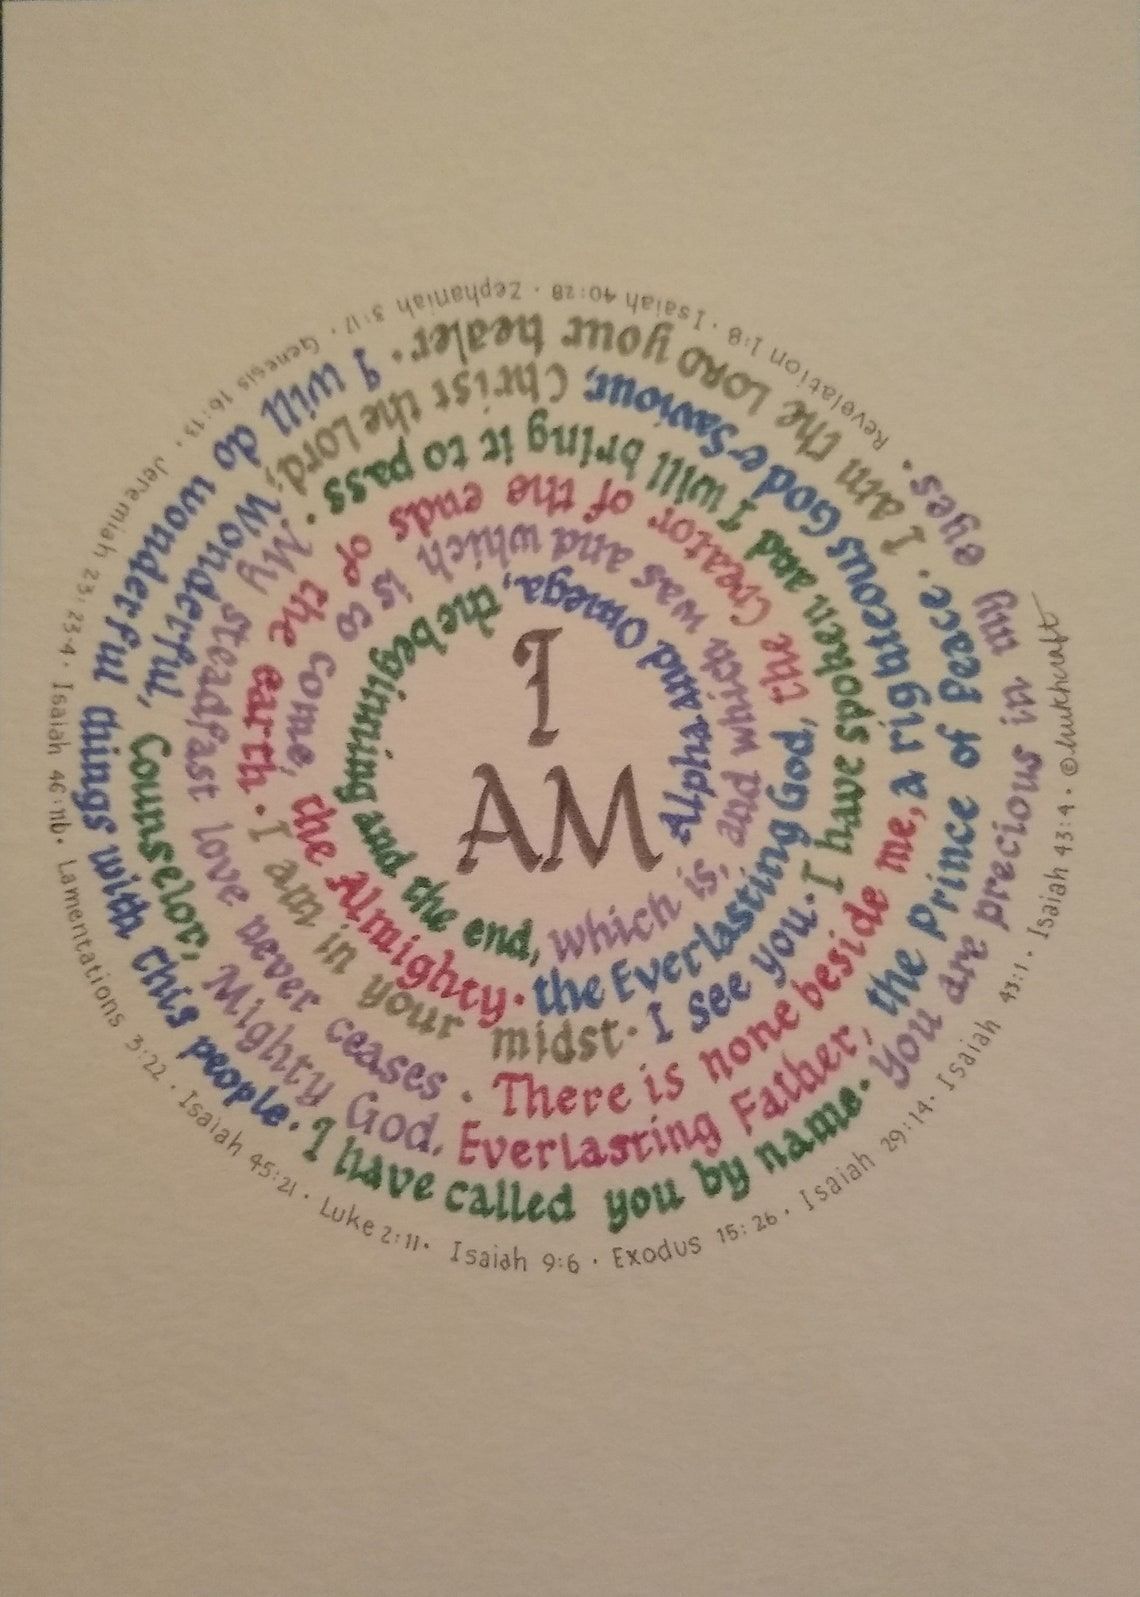 I
AM
Alpha and Omega, the beginning and the end, which is, and which was and which is to come, the Almighty · the Everlasting God, the Creator of the ends of the earth · I am in your midst · I see you · I have spoken and I will bring it to pass · My steadfast love never ceases · There is none beside me, a righteous God & Saviour, Christ the Lord; Wonderful, Counselor, Mighty God, Everlasting Father, the Prince of Peace · I am the LORD your healer · I will do wonderful things with this people · I have called you by name · You are precious in my eyes ·
Revelation 1:8 · Isaiah 40:28 · Zephaniah 3:17 · Genesis 16:13 · Jeremiah 23:23-4 · Isaiah 46:11b · Lamentations 3:22 · Isaiah 45:21 · Luke 2:11 · Isaiah 9:6 · Exodus 15:26 · Isaiah 29:14 · Isaiah 43:1 · Isaiah 43:4 ·